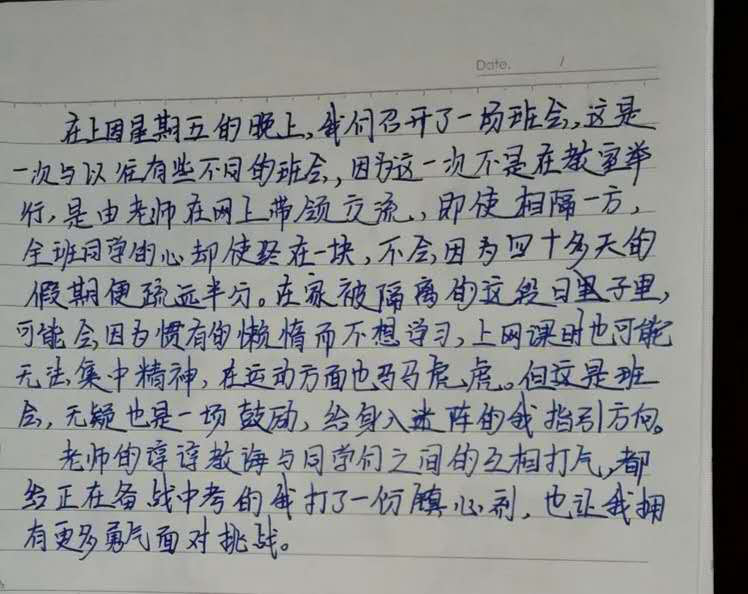 Date. /
在上周星期五的晚上,我们召开了一场班会,这是
一次与以往有些不同的班会,因为这一次不是在教室举
行,是由老师在网上带领交流,即使相隔一方,
全班同学的心却使终在一块,不会因为四十多天的
假期便疏远半分。在家被隔离的这段日子里,
可能会因为惯有的懒惰而不想学习,上网课时也可能
无法集中精神,在运动方面也马马虎虎。但这是班
会,无疑也是一场鼓励,给身入迷阵的我指引方向。
老师的谆谆教诲与同学们之间的互相打气,都
给正在备战中考的我打了一份镇心剂,也让我拥
有更多勇气面对挑战。